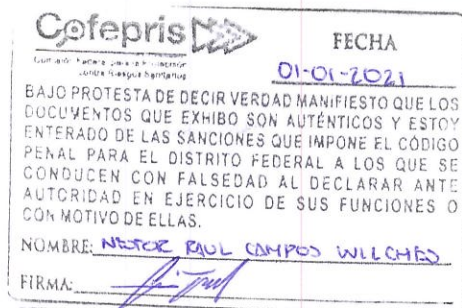 Cofepris
FECHA
Comisión Federal para la Protección
contra Riesgos Sanitarios
01-01-2021
BAJO PROTESTA DE DECIR VERDAD MANIFIESTO QUE LOS
DOCUMENTOS QUE EXHIBO SON AUTÉNTICOS Y ESTOY
ENTERADO DE LAS SANCIONES QUE IMPONE EL CÓDIGO
PENAL PARA EL DISTRITO FEDERAL A LOS QUE SE
CONDUCEN CON FALSEDAD AL DECLARAR ANTE
AUTORIDAD EN EJERCICIO DE SUS FUNCIONES O
CON MOTIVO DE ELLAS.
NOMBRE: NESTOR RAUL CAMPOS WILCHES
FIRMA: